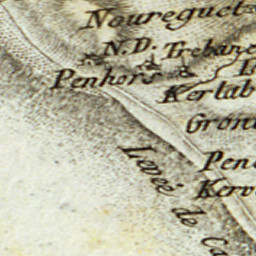 Noureguet
N.D. Trebane
Penhors
Kerlab
Gron
Pen
Kerv
Levée de Ca